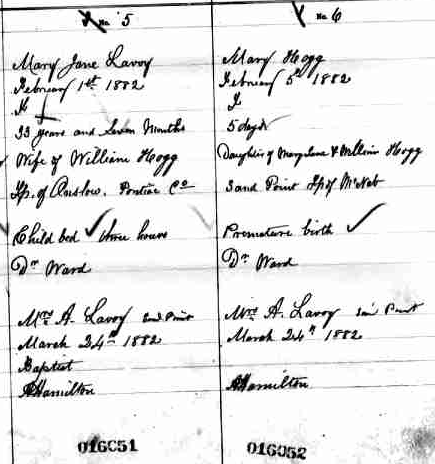 No 5
Mary Jane Lavoy
February 1st 1882
F
33 years and Seven Months
Wife of William Hogg
Tp. of Onslow. Pontiac Co
Child bed three hours
Dr Ward
Mrs A. Lavoy Sand Point
March 24th 1882
Baptist
Hamilton
016051
No 6
Mary Hogg
February 5th 1882
F
5 days
Daughter of Mary Jane & William Hogg
Sand Point Tp of McNab
Premature birth
Dr Ward
Mrs A. Lavoy Sand Point
March 24th 1882
Hamilton
016052